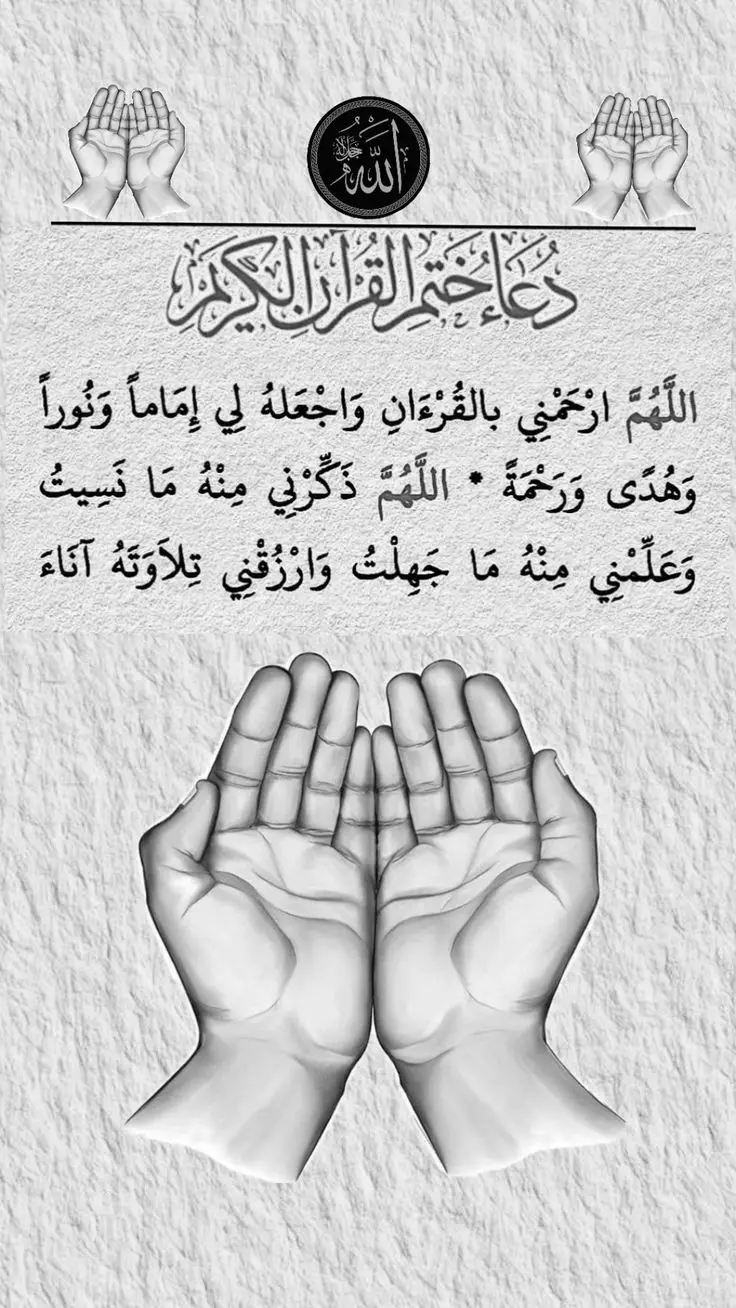 الله جل جلاله
دُعَاءُ خَتْمِ القُرْآنِ الكَرِيمِ
اللَّهُمَّ ارْحَمْنِي بالقُرْءَانِ وَاجْعَلهُ لِي إِمَاماً وَنُوراً
وَهُدًى وَرَحْمَةً * اللَّهُمَّ ذَكِّرْنِي مِنْهُ مَا نَسِيتُ
وَعَلِّمْنِي مِنْهُ مَا جَهِلْتُ وَارْزُقْنِي تِلاَوَتَهُ آنَاءَ